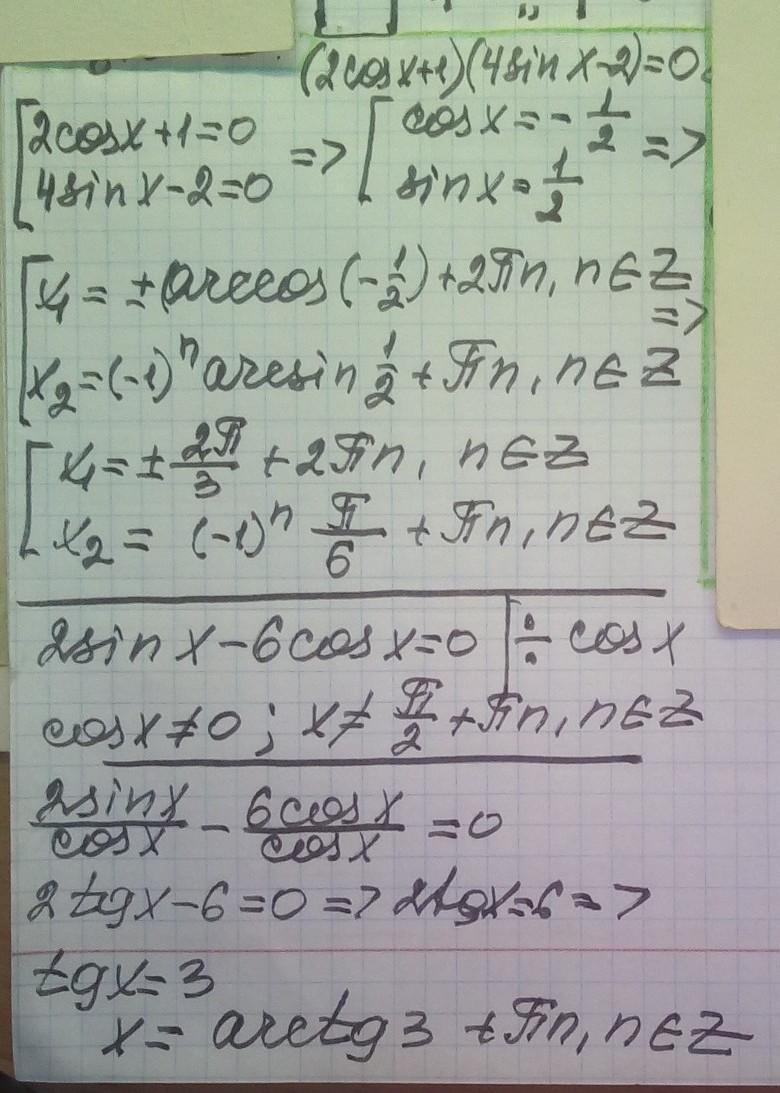 (2cosx+1)(4sinx-2)=0
[2cosx+1=0 => [cosx=-1/2 =>
[4sinx-2=0 [sinx=1/2
[x₁=±(arccos(-1/2)+2πn, n∈Z =>
[x₂=(-1)ⁿarcsin1/2+πn, n∈Z
[x₁=±2π/3+2πn, n∈Z
[x₂=(-1)ⁿ π/6+πn, n∈Z
2sinx-6cosx=0 |÷cosx
cosx≠0; x≠π/2+πn, n∈Z
2sinx/cosx - 6cosx/cosx =0
2tgx-6=0 => 2tgx=6 =>
tgx=3
x=arctg3+πn, n∈Z